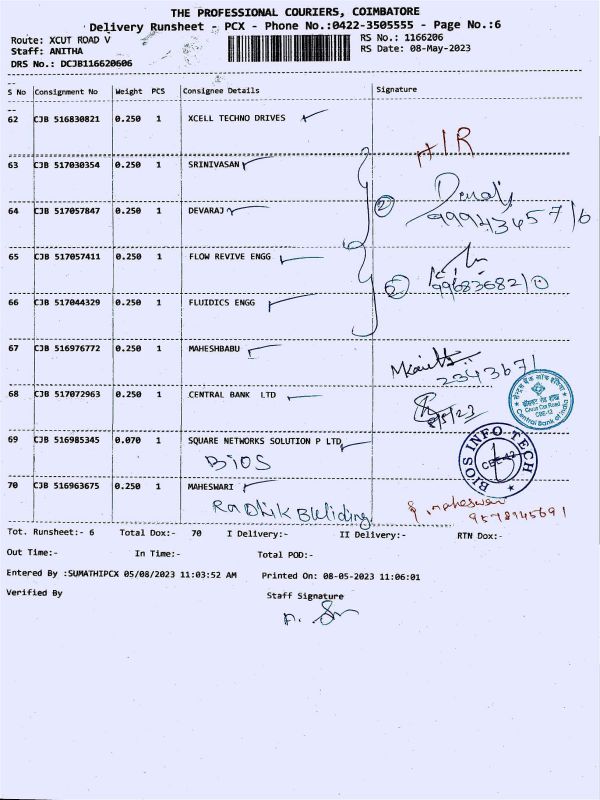 THE PROFESSIONAL COURIERS, COIMBATORE
Delivery Runsheet - PCX - Phone No.:0422-3505555 - Page No.:6
Route: XCUT ROAD V RS No.: 1166206
Staff: ANITHA RS Date: 08-May-2023
DRS No.: DCJB116620606
S No Consignment No Weight PCS Consignee Details Signature
62 CJB 516830821 0.250 1 XCELL TECHNO DRIVES
63 CJB 517030354 0.250 1 SRINIVASAN
64 CJB 517057847 0.250 1 DEVARAJ
65 CJB 517057411 0.250 1 FLOW REVIVE ENGG
66 CJB 517044329 0.250 1 FLUIDICS ENGG
67 CJB 516976772 0.250 1 MAHESHBABU
2343671
68 CJB 517072963 0.250 1 CENTRAL BANK LTD
8/5/23
Central Bank of India
69 CJB 516985345 0.070 1 SQUARE NETWORKS SOLUTION P LTD
BIOS
BIOS INFO TECH
CBE-12
70 CJB 516963675 0.250 1 MAHESWARI
Maheswari
9578945691
Tot. Runsheet:- 6 Total Dox:- 70 I Delivery:- II Delivery:- RTN Dox:-
Out Time:- In Time:- Total POD:-
Entered By :SUMATHIPCX 05/08/2023 11:03:52 AM Printed On: 08-05-2023 11:06:01
Verified By Staff Signature